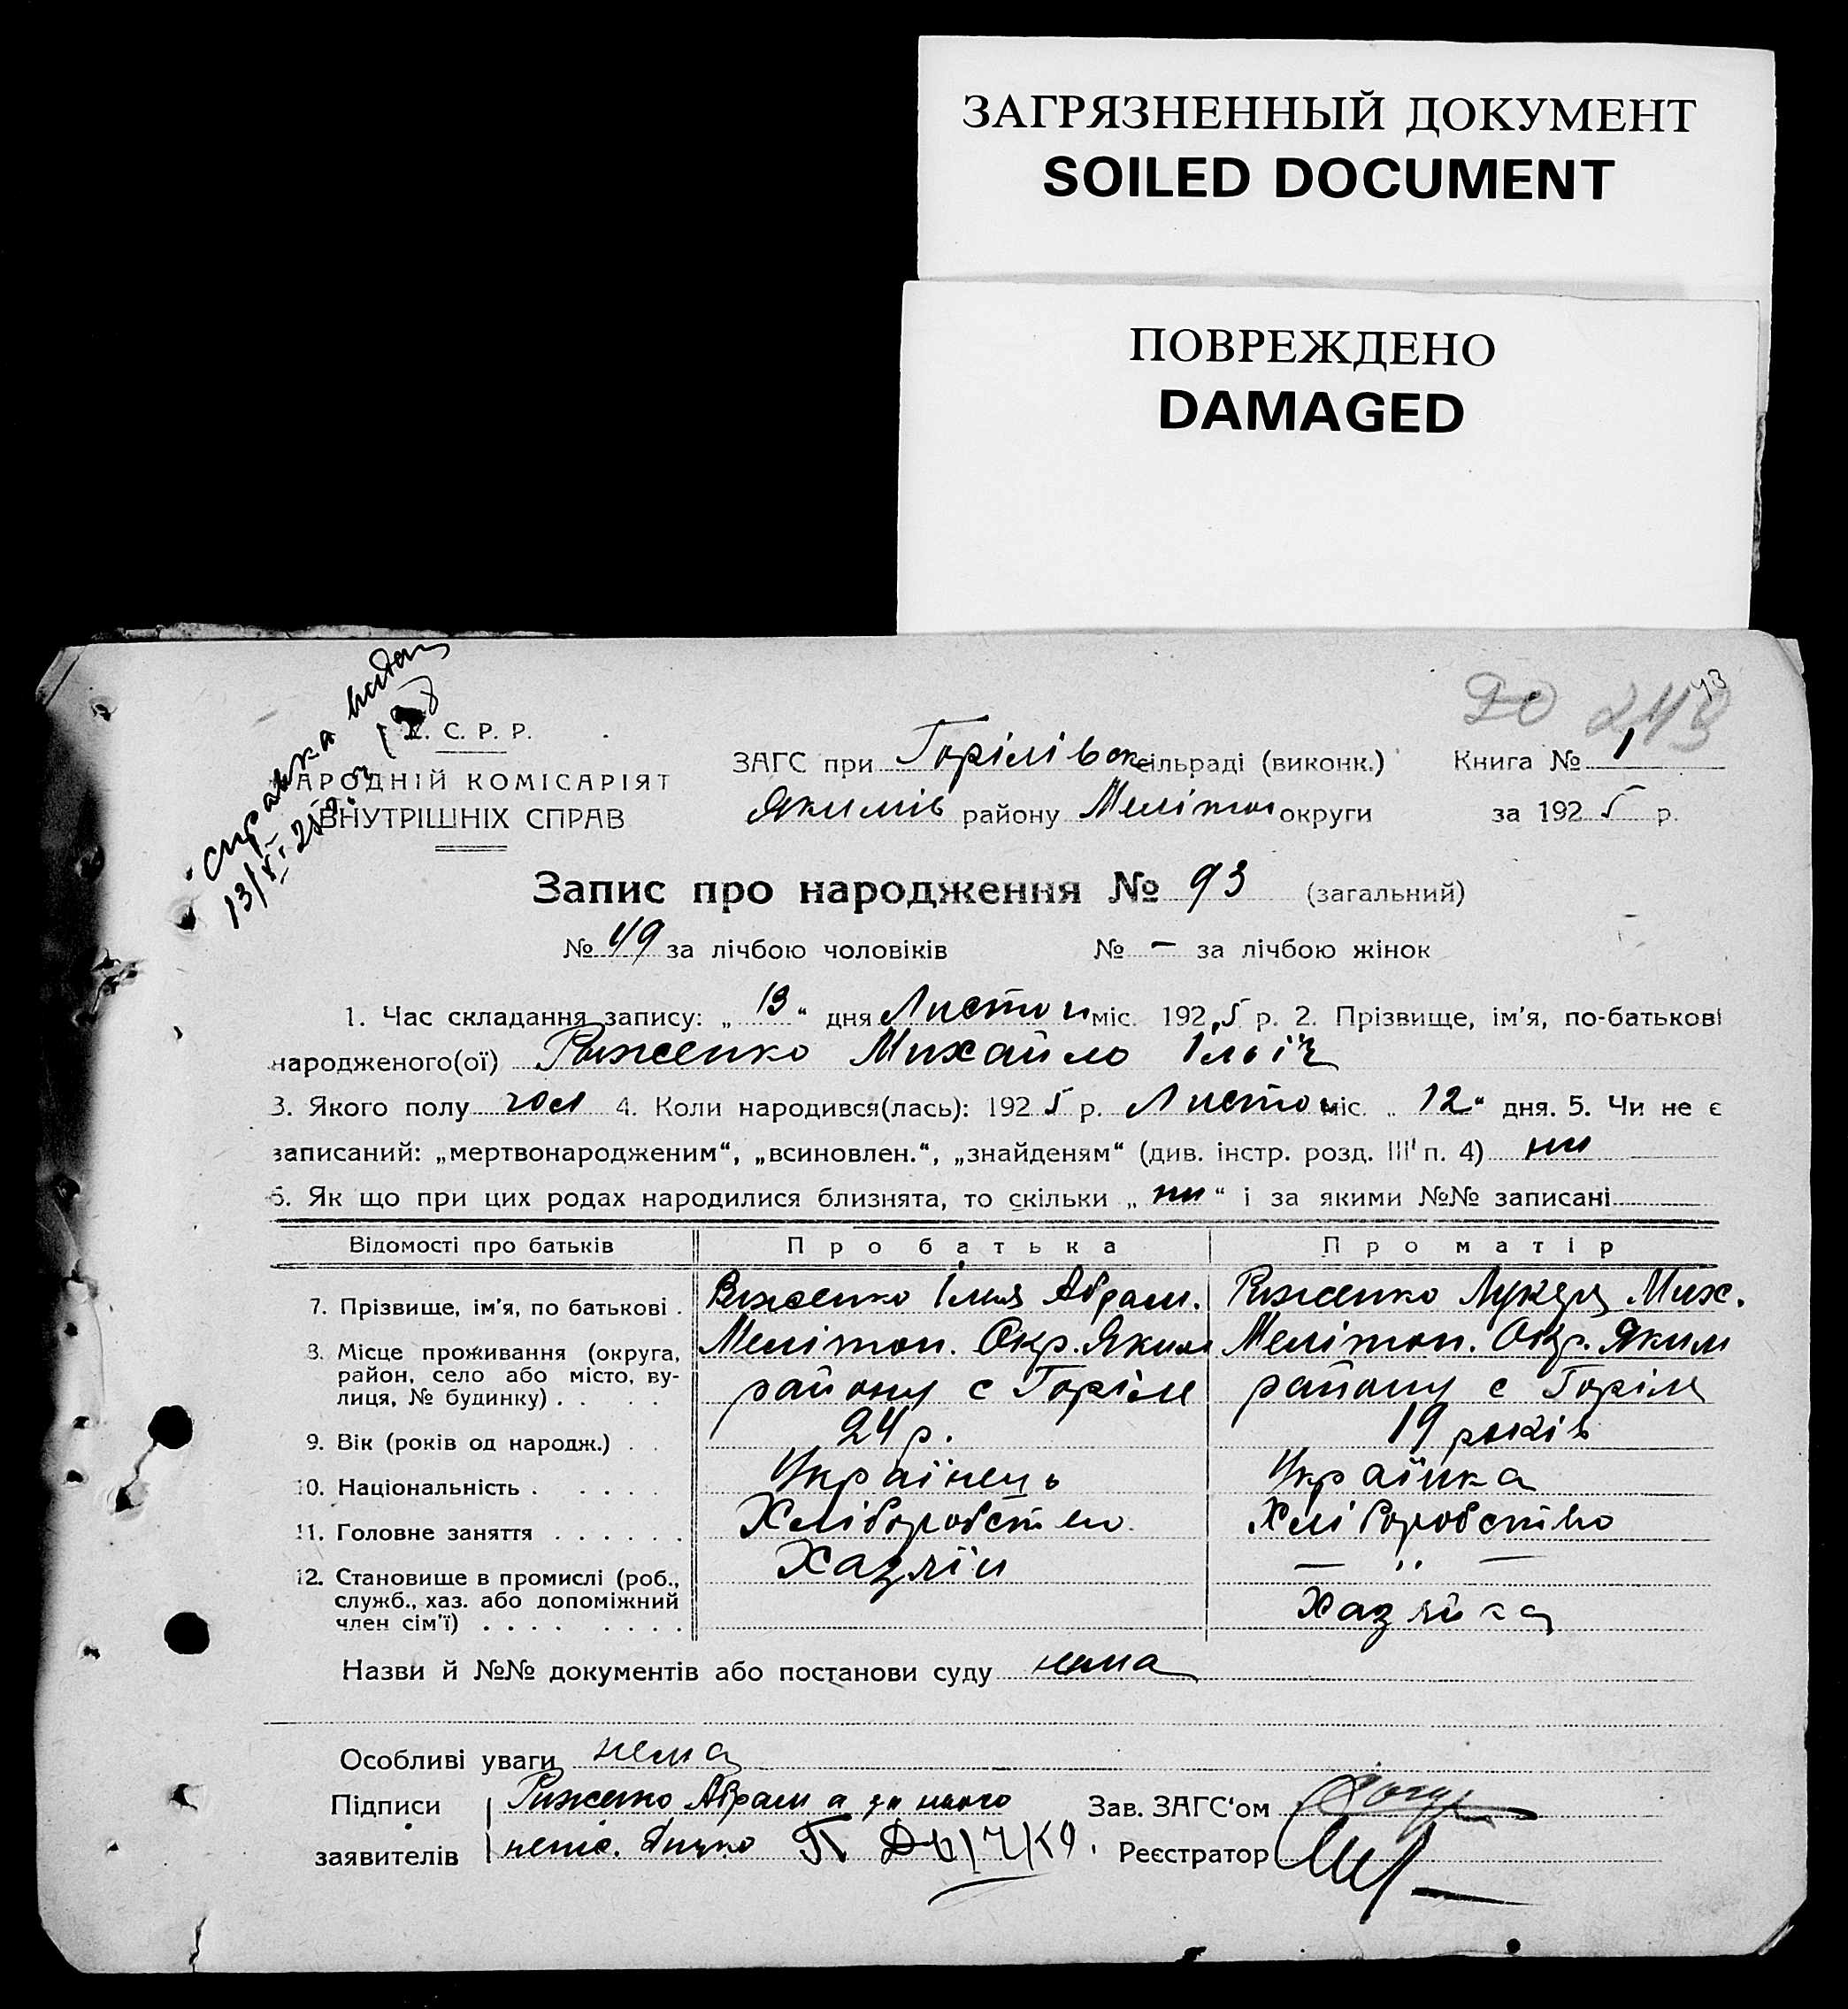 ЗАГРЯЗНЕННЫЙ ДОКУМЕНТ
SOILED DOCUMENT
ПОВРЕЖДЕНО
DAMAGED
справка видан
20 243
. С. Р. Р.
АРОДНІЙ КОМІСАРІЯТ
ВНУТРІШНІХ СПРАВ
ЗАГС при Горілівск сільраді (виконк.) Книга № 1
Якимів району Мелітоп округи за 1925 р.
Запис про народження № 93 (загальний)
№ 49 за лічбою чоловіків № – за лічбою жінок
1. Час складання запису: „ 13 “ дня Листоп міс. 1925 р. 2. Прізвище, ім’я, по-батькові
народженого(ої) Риженко Михайло Ільіч
3. Якого полу чол 4. Коли народився(лась): 1925 р. Листоп міс. „ 12 “ дня. 5. Чи не є
записаний: „мертвонародженим“, „всиновлен.“, „знайденям“ (див. інстр. розд. III п. 4) ни
6. Як що при цих родах народилися близнята, то скільки „ ни “ і за якими №№ записані
Відомості про батьків Про батька Про матір
7. Прізвище, ім’я, по батькові . Риженко Ілля Абрам. Риженко Лукеря Мих.
8. Місце проживання (округа, район, село або місто, вулиця, № будинку) . . . . Мелітоп. Окр. Яким Мелітоп. Окр. Яким
району с Горіле району с Горіле
9. Вік (років од народж.) . . 24 р. 19 років
10. Національність . . . . . . Українець Українка
11. Головне заняття . . . . . . Хліборобство Хліборобство
12. Становище в промислі (роб., Хазяїн — " —
служб., хаз. або допоміжний
член сім’ї) . . . . . . . . Хазяйка
Назви й №№ документів або постанови суду нема
Особливі уваги нема
Підписи Риженко Абрам а за нього Зав. ЗАГС‘ом
заявителів непис. П Дычко. Реєстратор